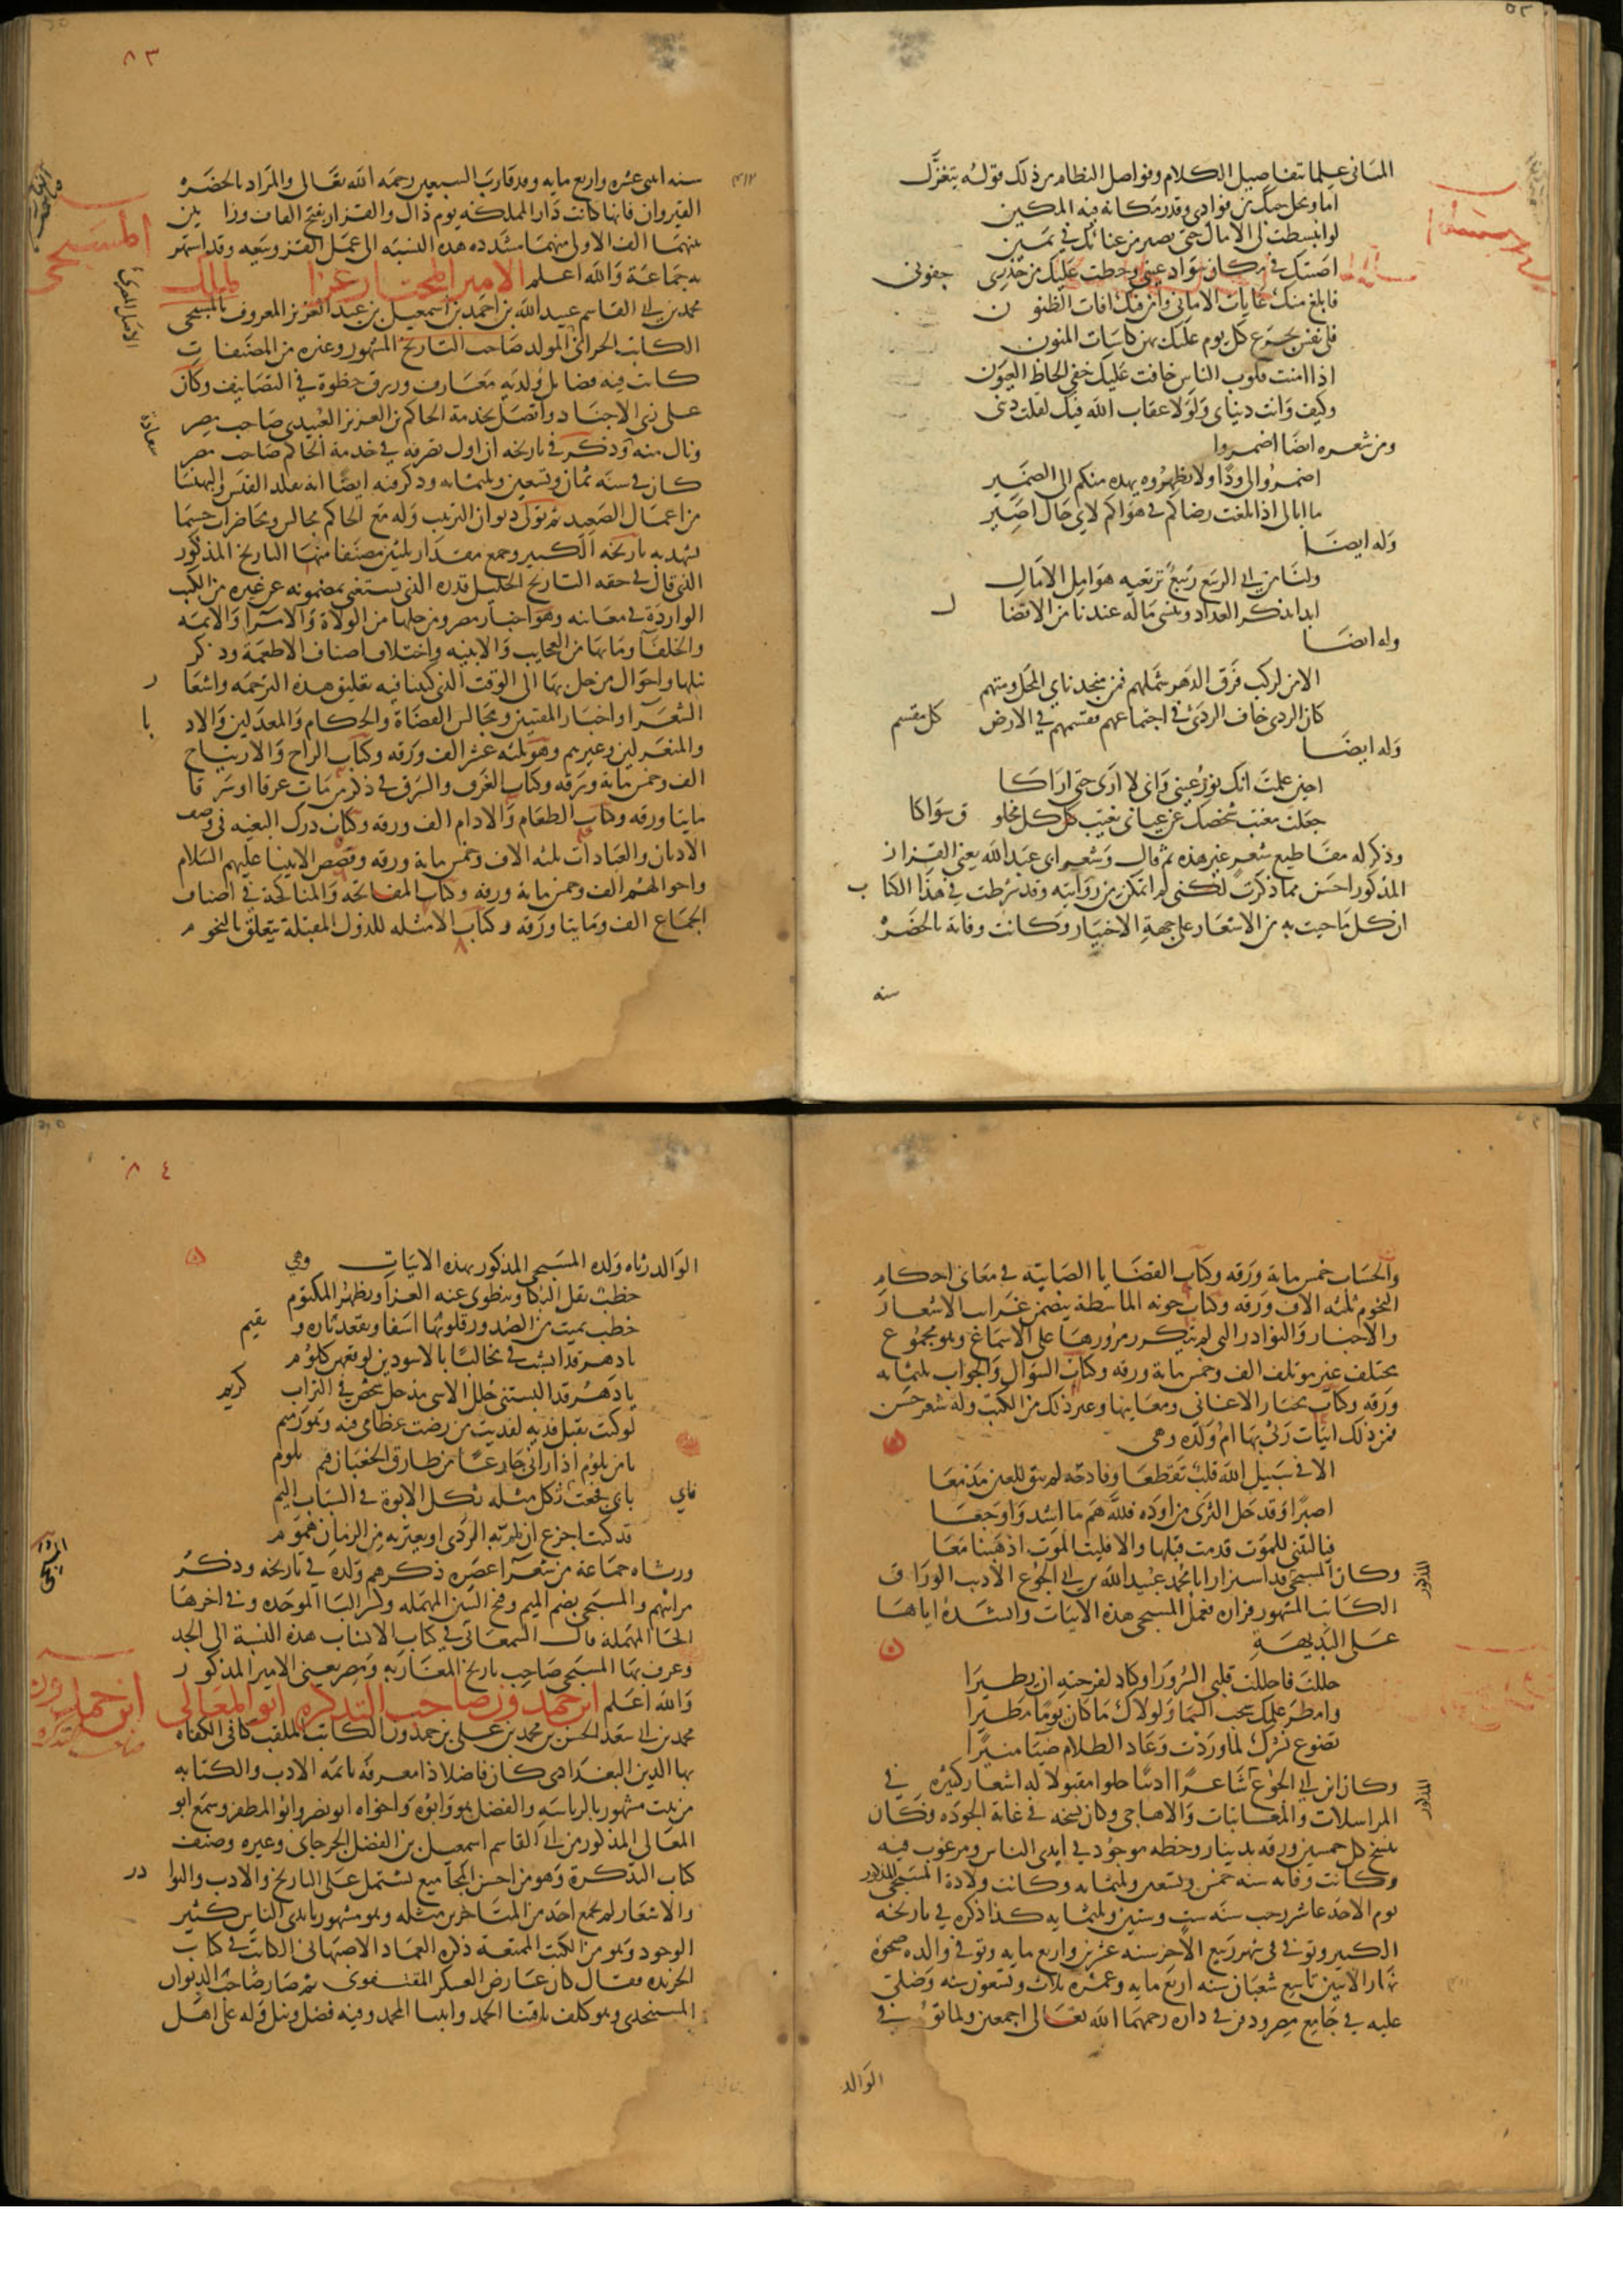 المعاني علما بتفاصيل الكلام وفواصل النظام من ذلك قوله يتغزل
اما ومحل حبك من فوادي وقدر مكانه فيه المكين
لو انبسطت لي الامال حتى يصير من عنانك في يمين
لصنتك في مكان سواد عيني وحطت عليك من حذري جفوني
فابلغ منك غايات الاماني وامن فيك افات الظنون
فلي نفس تجرع كل يوم عليك بهن كاسات المنون
اذا امنت قلوب الناس خافت عليك خفي الحاظ العيون
وكيف وانت دنياي ولولا عقاب الله فيك لقلت ديني
ومن شعره ايضا اضمروا
اضمروا لي ودا ولا تظهروه يهده منكم الي الضمير
ما ابالي اذا بلغت رضاكم في هواكم لاي حال اصير
وله ايضا
ولنا من ابي الربيع ربيع ترتعيه هوامل الامال
ابدا يذكر العداد وينسى ما له عندنا من الافضال
وله ايضا
الا من لركب فرق الدهر شملهم فمن منجد ناي المحل ومتهم
كان الردى خاف الردى في اجتماعهم فقسمهم في الارض كل مقسم
وله ايضا
احين علمت انك نور عيني واني لا ارى حتى اراكا
جعلت مغيب شخصك عن عياني يغيب كل مخلوق سواكا
وذكر له مقاطيع شعر غير هذه ثم قال وشعر ابي عبد الله يعني القزاز
المذكور احسن مما ذكرت لكني لم اتمكن من روايته وقد شرطت في هذا الكتاب
ان كل ما جيت به من الاشعار على جهة الاختيار وكانت وفاته بالحضره
سنه
٨٣
سنه اثني عشره واربع مايه وقد قارب السبعين رحمه الله تعالى والمراد بالحضره
القيروان فانها كانت دار المملكه يوم ذاك والقزاز بفتح القاف وزايين
بينهما الف الاولى منهما مشدده هذه النسبه الى عمل القز وبيعه وقد اشتهر
به جماعة والله اعلم الامير المختار عز الملك
المسبحي
محمد بن ابي القاسم عبيد الله بن احمد بن اسمعيل بن عبد العزيز المعروف بالمسبحي
الكاتب الحراني المولد صاحب التاريخ المشهور وغيره من المصنفات
كانت فيه فضايل ولديه معارف ورزق حظوة في التصانيف وكان
على زي الاجناد واتصل بخدمة الحاكم بن العزيز العبيدي صاحب مصر
ونال منه وذكر في تاريخه ان اول تصرفه في خدمة الحاكم صاحب مصر
كان في سنه ثمان وتسعين وثلثمايه وذكر فيه ايضا انه تقلد القيس والبهنسا
من اعمال الصعيد ثم تولى ديوان الترتيب وله مع الحاكم مجالس ومحاضرات حسبما
يشهد به تاريخه الكبير وجمع مقدار ثلثين مصنفا منها التاريخ المذكور
الذي قال في حقه التاريخ الجليل قدره الذي يستغنى بمضمونه عن غيره من الكتب
الواردة في معانيه وهو اخبار مصر ومن حلها من الولاة والامرا والايمه
والخلفا وما بها من العجايب والابنيه واختلاف اصناف الاطعمة وذكر
نيلها واحوال من حل بها الى الوقت الذي كتبنا فيه تعليق هذه الترجمه واشعار
الشعرا واخبار المغنين ومجالس القضاة والحكام والمعدلين والادبا
والمتغزلين وغيرهم وهو ثلثه عشر الف ورقه وكتاب الراح والارتياح
الف وخمس مايه ورقه وكتاب الغرق والشرق في ذكر من مات غرقا او شرقا
مايتا ورقه وكتاب الطعام والادام الف ورقه وكتاب درك البغيه في وصف
الاديان والعبادات ثلثه الاف وخمس مايه ورقه وقصص الانبيا عليهم السلام
واحوالهم الف وخمس مايه ورقه وكتاب المفاتحه والمناكحة في اصناف
الجماع الف ومايتا ورقه وكتاب الامثله للدول المقبلة يتعلق بالنجوم
والحساب خمس مايه ورقه وكتاب القضايا الصايبه في معاني احكام
النجوم ثلثه الاف ورقه وكتاب جونه الماشطه يتضمن غرايب الاشعار
والاخبار والنوادر التي لم يتكرر مرورها على الاسماع وهو مجموع
مختلف غير موتلف الف وخمس مايه ورقه وكتاب السوال والجواب ثلثمايه
ورقه وكتاب مختار الاغاني ومعانيها وغير ذلك من الكتب وله شعر حسن
فمن ذلك ابيات رثى بها ام ولده وهي
الا في سبيل الله قلب تقطعا وفادحه لم تبق للعين مدمعا
اصبرا وقد حل الثرى من اوده فلله هم ما اشد واوجعا
فيا ليتني للموت قدمت قبلها والا فليت الموت اذهبنا معا
وكان المسبحي قد استزار ابا محمد عبيد الله بن ابي الجوع الاديب الوراق
الكاتب المشهور فزاره فعمل المسبحي هذه الابيات وانشده اياها
على البديهة
حللت فاحللت قلبي السرورا وكاد لفرحته ان يطيرا
وامطر علمك سحب السما ولولاك ما كان يوما مطيرا
تضوع نشرك لما وردت وعاد الظلام ضيا منيرا
وكان ابن ابي الجوع شاعرا اديبا حلوا مقبولا له اشعار كثيره في
المراسلات والمعاتبات والاهاجي وكان نسخه في غاية الجوده وكان
ينسخ كل خمسين ورقه بدينار وخطه موجود في ايدي الناس ومرغوب فيه
وكانت وفاته سنه خمس وتسعين وثلثمايه وكانت ولادة المسبحي المذكور
يوم الاحد عاشر رجب سنه ست وستين وثلثمايه كذا ذكره في تاريخه
الكبير وتوفي في شهر ربيع الاخر سنه عشرين واربع مايه وتوفي والده ضحوة
نهار الاثنين تاسع شعبان سنه اربع مايه وعمره ثلاث وتسعون سنه وصلي
عليه في جامع مصر ودفن في داره رحمهما الله تعالى اجمعين ولما توفي
الوالد
٨٤
الوالد رثاه ولده المسبحي المذكور بهذه الابيات وهي
خطب يقل له البكا وينطوي عنه العزا ويظهر المكتوم
خطب يميت من الصدور قلوبها اسفا ويقعد تاره ويقيم
يا دهر قد انشبت في مخالبا بالاسودين لوقعهن كلوم
يا دهر قد البستني حلل الاسى مذ حل شخص في التراب كريم
لو كنت تقبل فديه لفديت من رضت عظامي فيه وهو رميم
يا من يلوم اذا راني جازعا من طارق الحدثان فيم تلوم
بابي فجعت فاي ثكل مثله ثكل الابوة في الشباب اليم
قد كنت اجزع ان يلم به الردى او يعتريه من الزمان هموم
ورثاه جماعة من شعرا عصره ذكرهم ولده في تاريخه وذكر
مراثيهم والمسبحي بضم الميم وفتح السين المهمله وكسر البا الموحده وفي اخرها
الحا المهملة قال السمعاني في كتاب الانساب هذه النسبة الى الجد
وعرف بها المسبحي صاحب تاريخ المغاربه ومصر يعني الامير المذكور
والله اعلم ابن حمدون صاحب التذكره ابو المعالي
ابن حمدون
صاحب التذكره
محمد بن ابي سعد الحسن بن محمد بن علي بن حمدون الكاتب الملقب كافي الكفاه
بها الدين البغدادي كان فاضلا ذا معرفة تامه بالادب والكتابه
من بيت مشهور بالرياسه والفضل هو وابوه واخواه ابو نصر وابو المظفر وسمع ابو
المعالي المذكور من ابي القاسم اسمعيل بن الفضل الجرجاني وغيره وصنف
كتاب التذكرة وهو من احسن المجاميع يشتمل على التاريخ والادب والنوادر
والاشعار لم يجمع احد من المتاخرين مثله وهو مشهور بايدي الناس كثير
الوجود وهو من الكتب الممتعة ذكره العماد الاصبهاني الكاتب في كتاب
الخريده فقال كان عارض العسكر المقتفوي ثم صار صاحب الديوان
المستنجدي وهو كلف باقتنا الحمد وابتنا المجد وفيه فضل ونبل وله على اهل